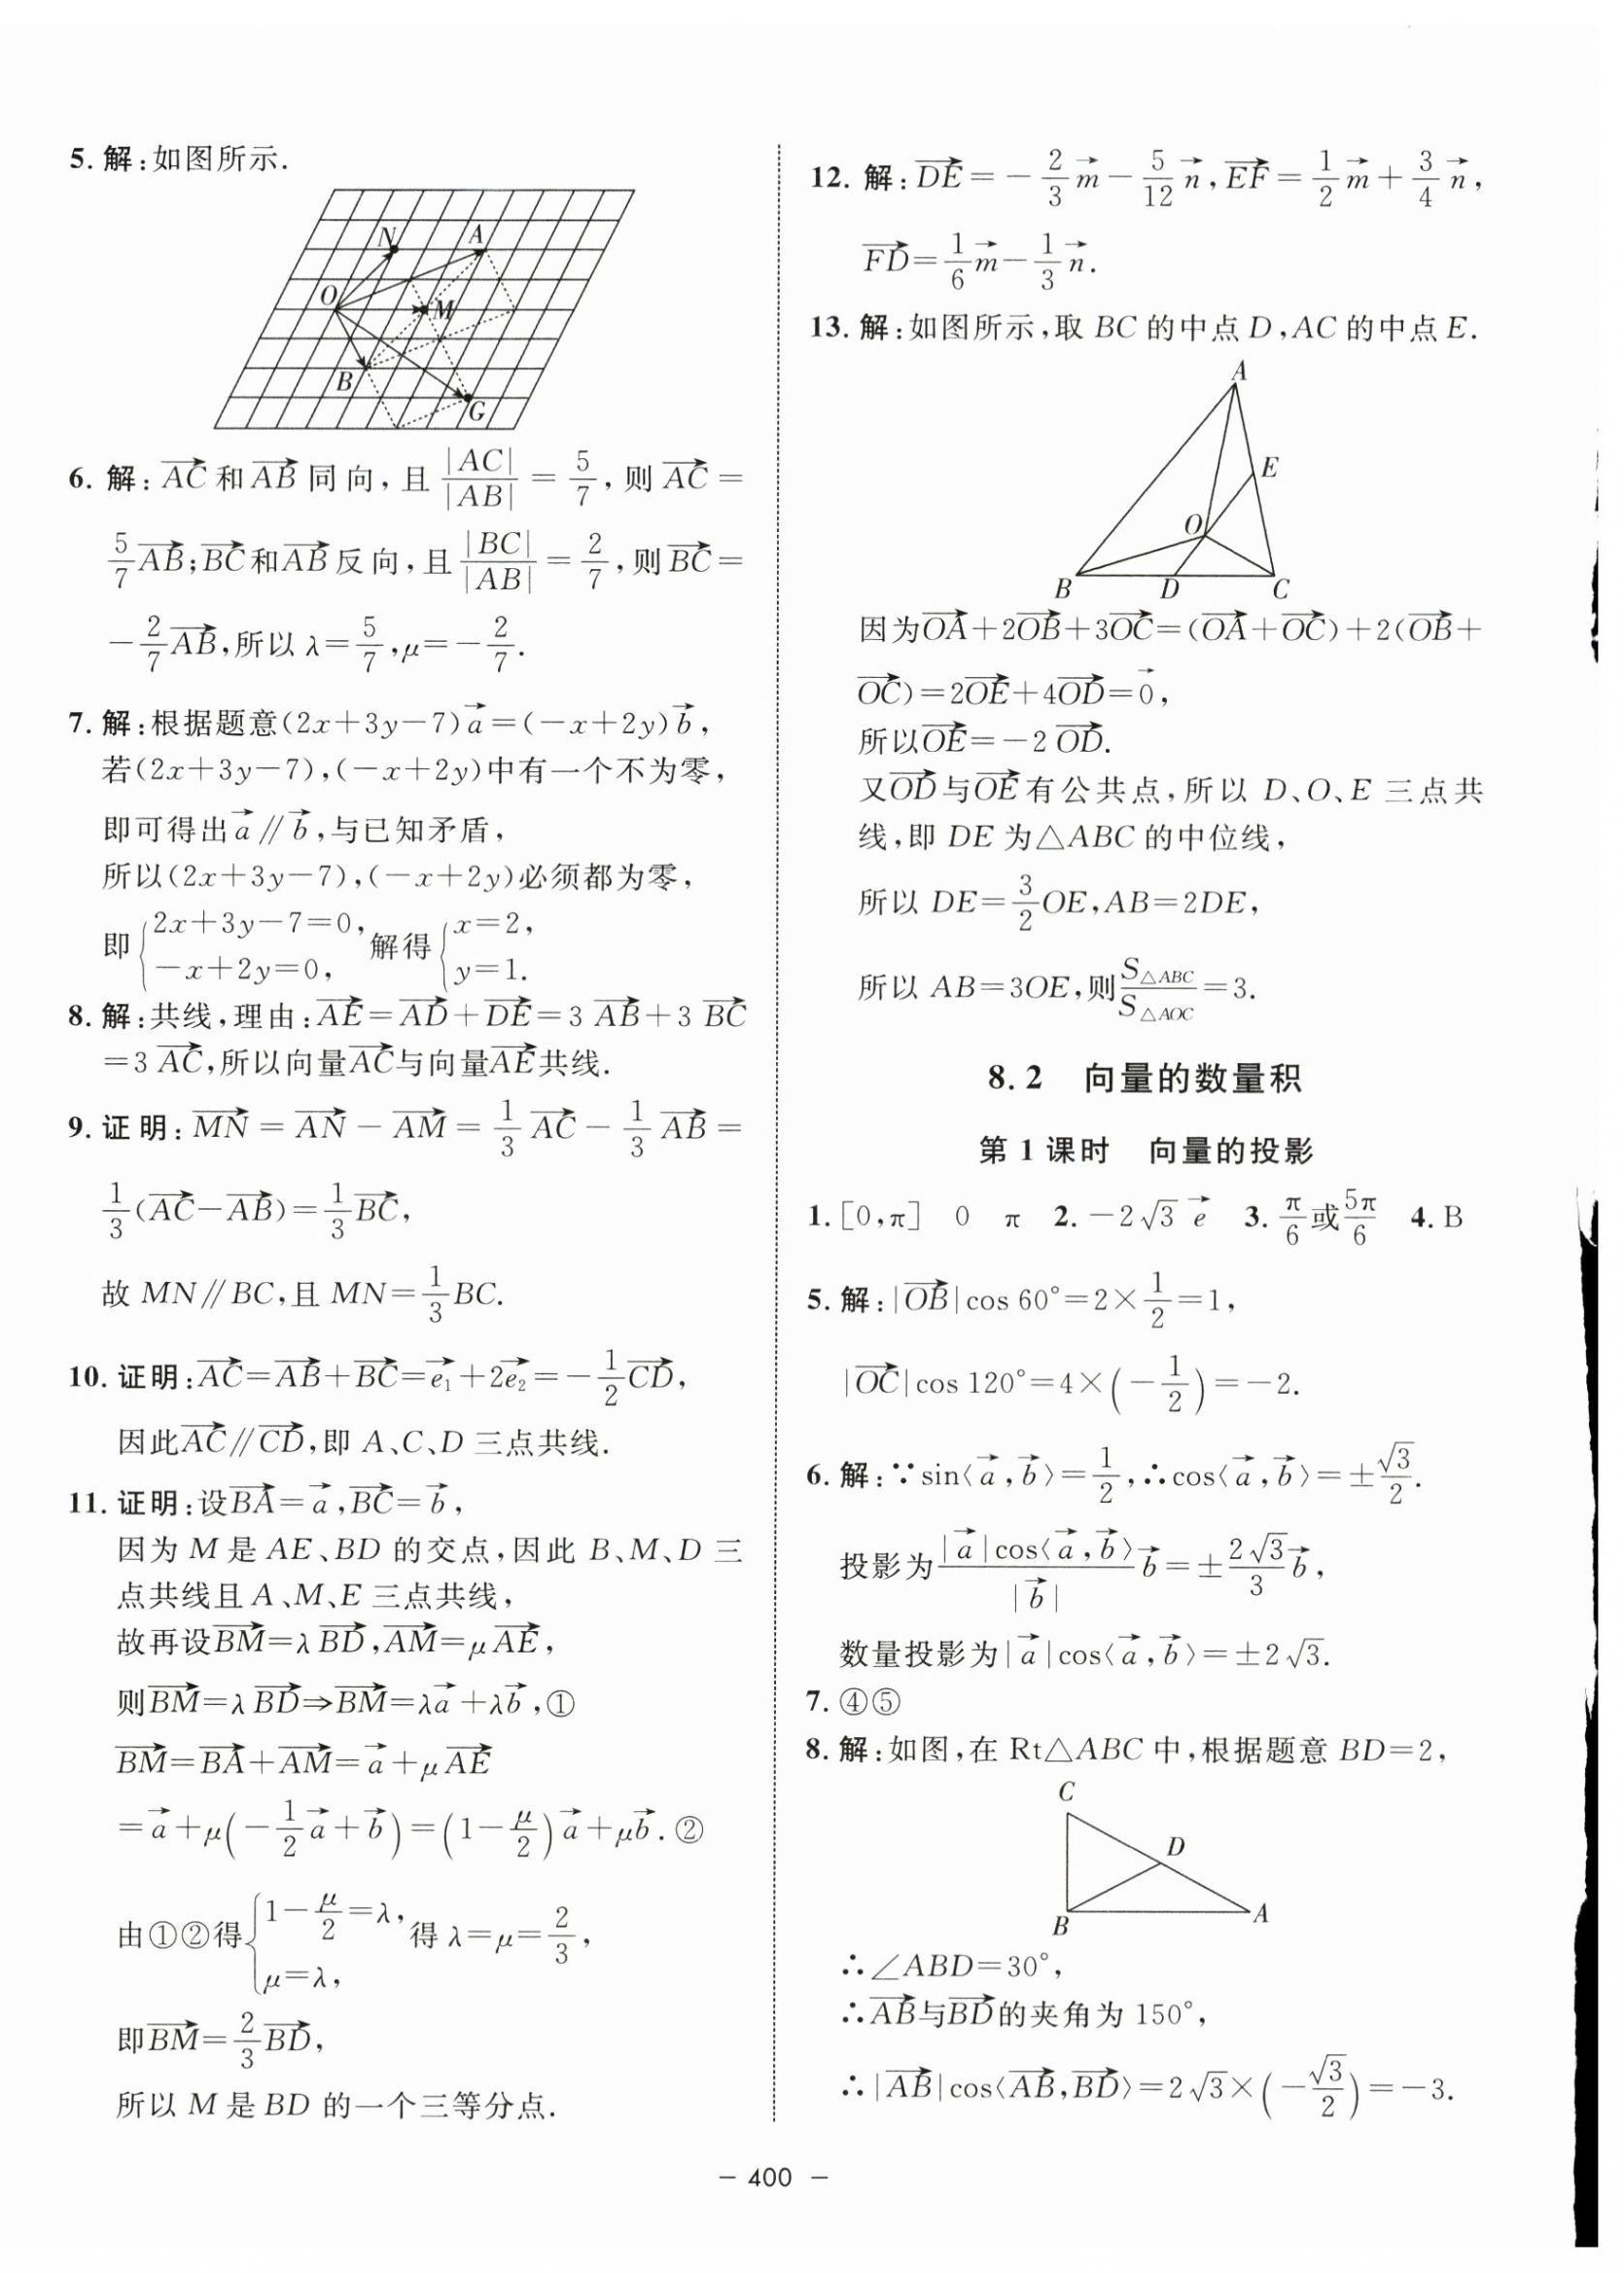 5. 解:如图所示.
N A
O M
B
G
6. 解: $\overrightarrow{AC}$ 和 $\overrightarrow{AB}$ 同向, 且 $\frac{|AC|}{|AB|}=\frac{5}{7}$, 则 $\overrightarrow{AC}=$
$\frac{5}{7}\overrightarrow{AB}$; $\overrightarrow{BC}$和$\overrightarrow{AB}$反向, 且$\frac{|BC|}{|AB|}=\frac{2}{7}$, 则$\overrightarrow{BC}=$
$-\frac{2}{7}\overrightarrow{AB}$, 所以 $\lambda=\frac{5}{7},\mu=-\frac{2}{7}$.
7. 解:根据题意$(2x+3y-7)\vec{a}=(-x+2y)\vec{b}$,
若$(2x+3y-7),(-x+2y)$中有一个不为零,
即可得出$\vec{a}∥\vec{b}$,与已知矛盾,
所以$(2x+3y-7),(-x+2y)$必须都为零,
即$\begin{cases}2x+3y-7=0,\\-x+2y=0,\end{cases}$解得$\begin{cases}x=2,\\y=1.\end{cases}$
8. 解:共线,理由:$\overrightarrow{AE}=\overrightarrow{AD}+\overrightarrow{DE}=3\overrightarrow{AB}+3\overrightarrow{BC}$
$=3\overrightarrow{AC}$,所以向量$\overrightarrow{AC}$与向量$\overrightarrow{AE}$共线.
9. 证明: $\overrightarrow{MN}=\overrightarrow{AN}-\overrightarrow{AM}=\frac{1}{3}\overrightarrow{AC}-\frac{1}{3}\overrightarrow{AB}=$
$\frac{1}{3}(\overrightarrow{AC}-\overrightarrow{AB})=\frac{1}{3}\overrightarrow{BC}$,
故 MN∥BC,且 $MN=\frac{1}{3}BC$.
10. 证明:$\overrightarrow{AC}=\overrightarrow{AB}+\overrightarrow{BC}=\vec{e_1}+2\vec{e_2}=-\frac{1}{2}\overrightarrow{CD}$,
因此$\overrightarrow{AC}∥\overrightarrow{CD}$,即 A、C、D 三点共线.
11. 证明:设$\overrightarrow{BA}=\vec{a},\overrightarrow{BC}=\vec{b}$,
因为 M 是 AE、BD 的交点,因此 B、M、D 三
点共线且 A、M、E 三点共线,
故再设$\overrightarrow{BM}=\lambda\overrightarrow{BD},\overrightarrow{AM}=\mu\overrightarrow{AE}$,
则$\overrightarrow{BM}=\lambda\overrightarrow{BD}\Rightarrow\overrightarrow{BM}=\lambda\vec{a}+\lambda\vec{b}$,①
$\overrightarrow{BM}=\overrightarrow{BA}+\overrightarrow{AM}=\vec{a}+\mu\overrightarrow{AE}$
$=\vec{a}+\mu\left(-\frac{1}{2}\vec{a}+\vec{b}\right)=\left(1-\frac{\mu}{2}\right)\vec{a}+\mu\vec{b}$.②
由①②得$\begin{cases}1-\frac{\mu}{2}=\lambda,\\\mu=\lambda,\end{cases}$得 $\lambda=\mu=\frac{2}{3}$,
即$\overrightarrow{BM}=\frac{2}{3}\overrightarrow{BD}$,
所以 M 是 BD 的一个三等分点.
12. 解:$\overrightarrow{DE}=-\frac{2}{3}\vec{m}-\frac{5}{12}\vec{n},\overrightarrow{EF}=\frac{1}{2}\vec{m}+\frac{3}{4}\vec{n}$,
$\overrightarrow{FD}=\frac{1}{6}\vec{m}-\frac{1}{3}\vec{n}$.
13. 解:如图所示,取 BC 的中点 D,AC 的中点 E.
A
E
O
B D C
因为$\overrightarrow{OA}+2\overrightarrow{OB}+3\overrightarrow{OC}=(\overrightarrow{OA}+\overrightarrow{OC})+2(\overrightarrow{OB}+$
$\overrightarrow{OC})=2\overrightarrow{OE}+4\overrightarrow{OD}=\vec{0}$,
所以$\overrightarrow{OE}=-2\overrightarrow{OD}$.
又$\overrightarrow{OD}$与$\overrightarrow{OE}$有公共点,所以 D、O、E 三点共
线,即 DE 为△ABC 的中位线,
所以 $DE=\frac{3}{2}OE,AB=2DE$,
所以 $AB=3OE$,则$\frac{S_{△ABC}}{S_{△AOC}}=3$.
8.2 向量的数量积
第 1 课时 向量的投影
1. [0,π] 0 π 2. $-2\sqrt{3}\vec{e}$ 3. $\frac{π}{6}$或$\frac{5π}{6}$ 4. B
5. 解:$|\overrightarrow{OB}|\cos 60°=2×\frac{1}{2}=1$,
$|\overrightarrow{OC}|\cos 120°=4×\left(-\frac{1}{2}\right)=-2$.
6. 解:∵$\sin\langle\vec{a},\vec{b}\rangle=\frac{1}{2}$,∴$\cos\langle\vec{a},\vec{b}\rangle=±\frac{\sqrt{3}}{2}$.
投影为$\frac{|\vec{a}|\cos\langle\vec{a},\vec{b}\rangle}{|\vec{b}|}\vec{b}=±\frac{2\sqrt{3}}{3}\vec{b}$,
数量投影为$|\vec{a}|\cos\langle\vec{a},\vec{b}\rangle=±2\sqrt{3}$.
7. ④⑤
8. 解:如图,在 Rt△ABC 中,根据题意 BD=2,
C
D
B A
∴∠ABD=30°,
∴$\overrightarrow{AB}$与$\overrightarrow{BD}$的夹角为 150°,
∴$|\overrightarrow{AB}|\cos\langle\overrightarrow{AB},\overrightarrow{BD}\rangle=2\sqrt{3}×\left(-\frac{\sqrt{3}}{2}\right)=-3$.
- 400 -